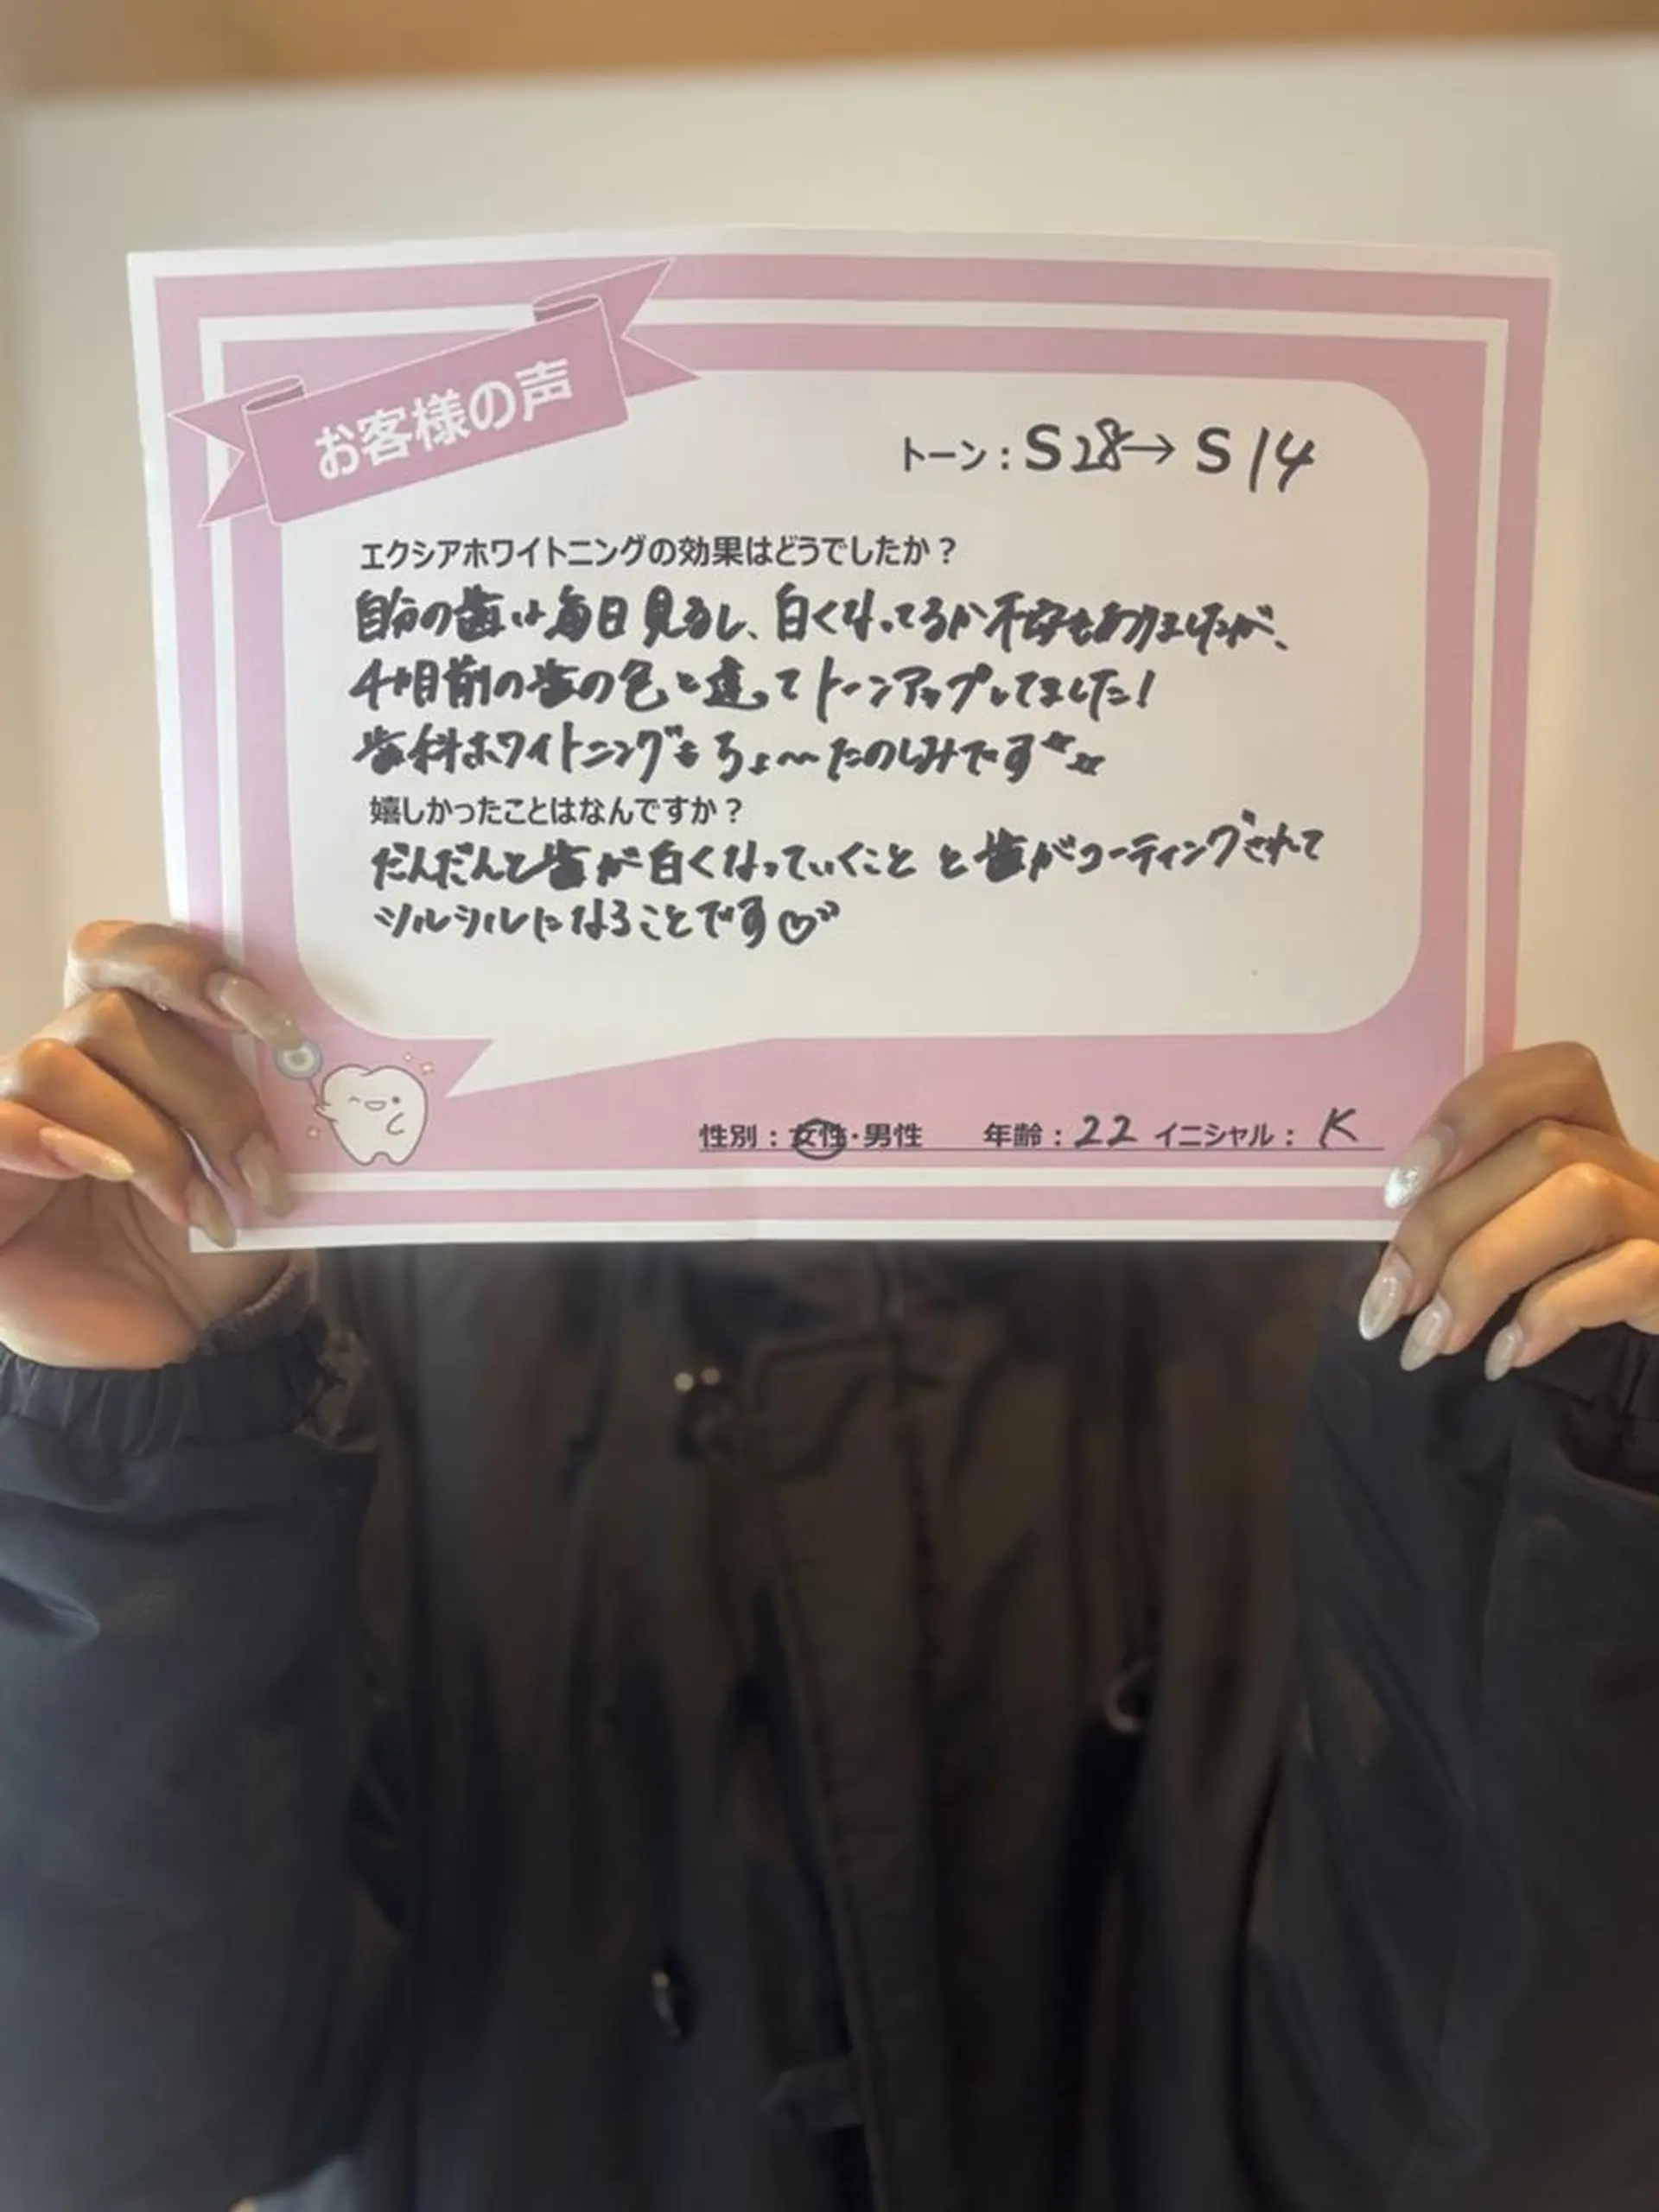 お客様の声
トーン：S28→S14
エクシアホワイトニングの効果はどうでしたか？
自分の歯は毎日見るし、白くなってるか不安もありましたが、
4ヶ月前の歯の色と違ってトーンアップしてました！
歯科ホワイトニングもちょ〜たのしみです
嬉しかったことはなんですか？
だんだんと歯が白くなっていくことと歯がコーティングされて
ツルツルになることです♡
性別：女性・男性　年齢：22 イニシャル：K